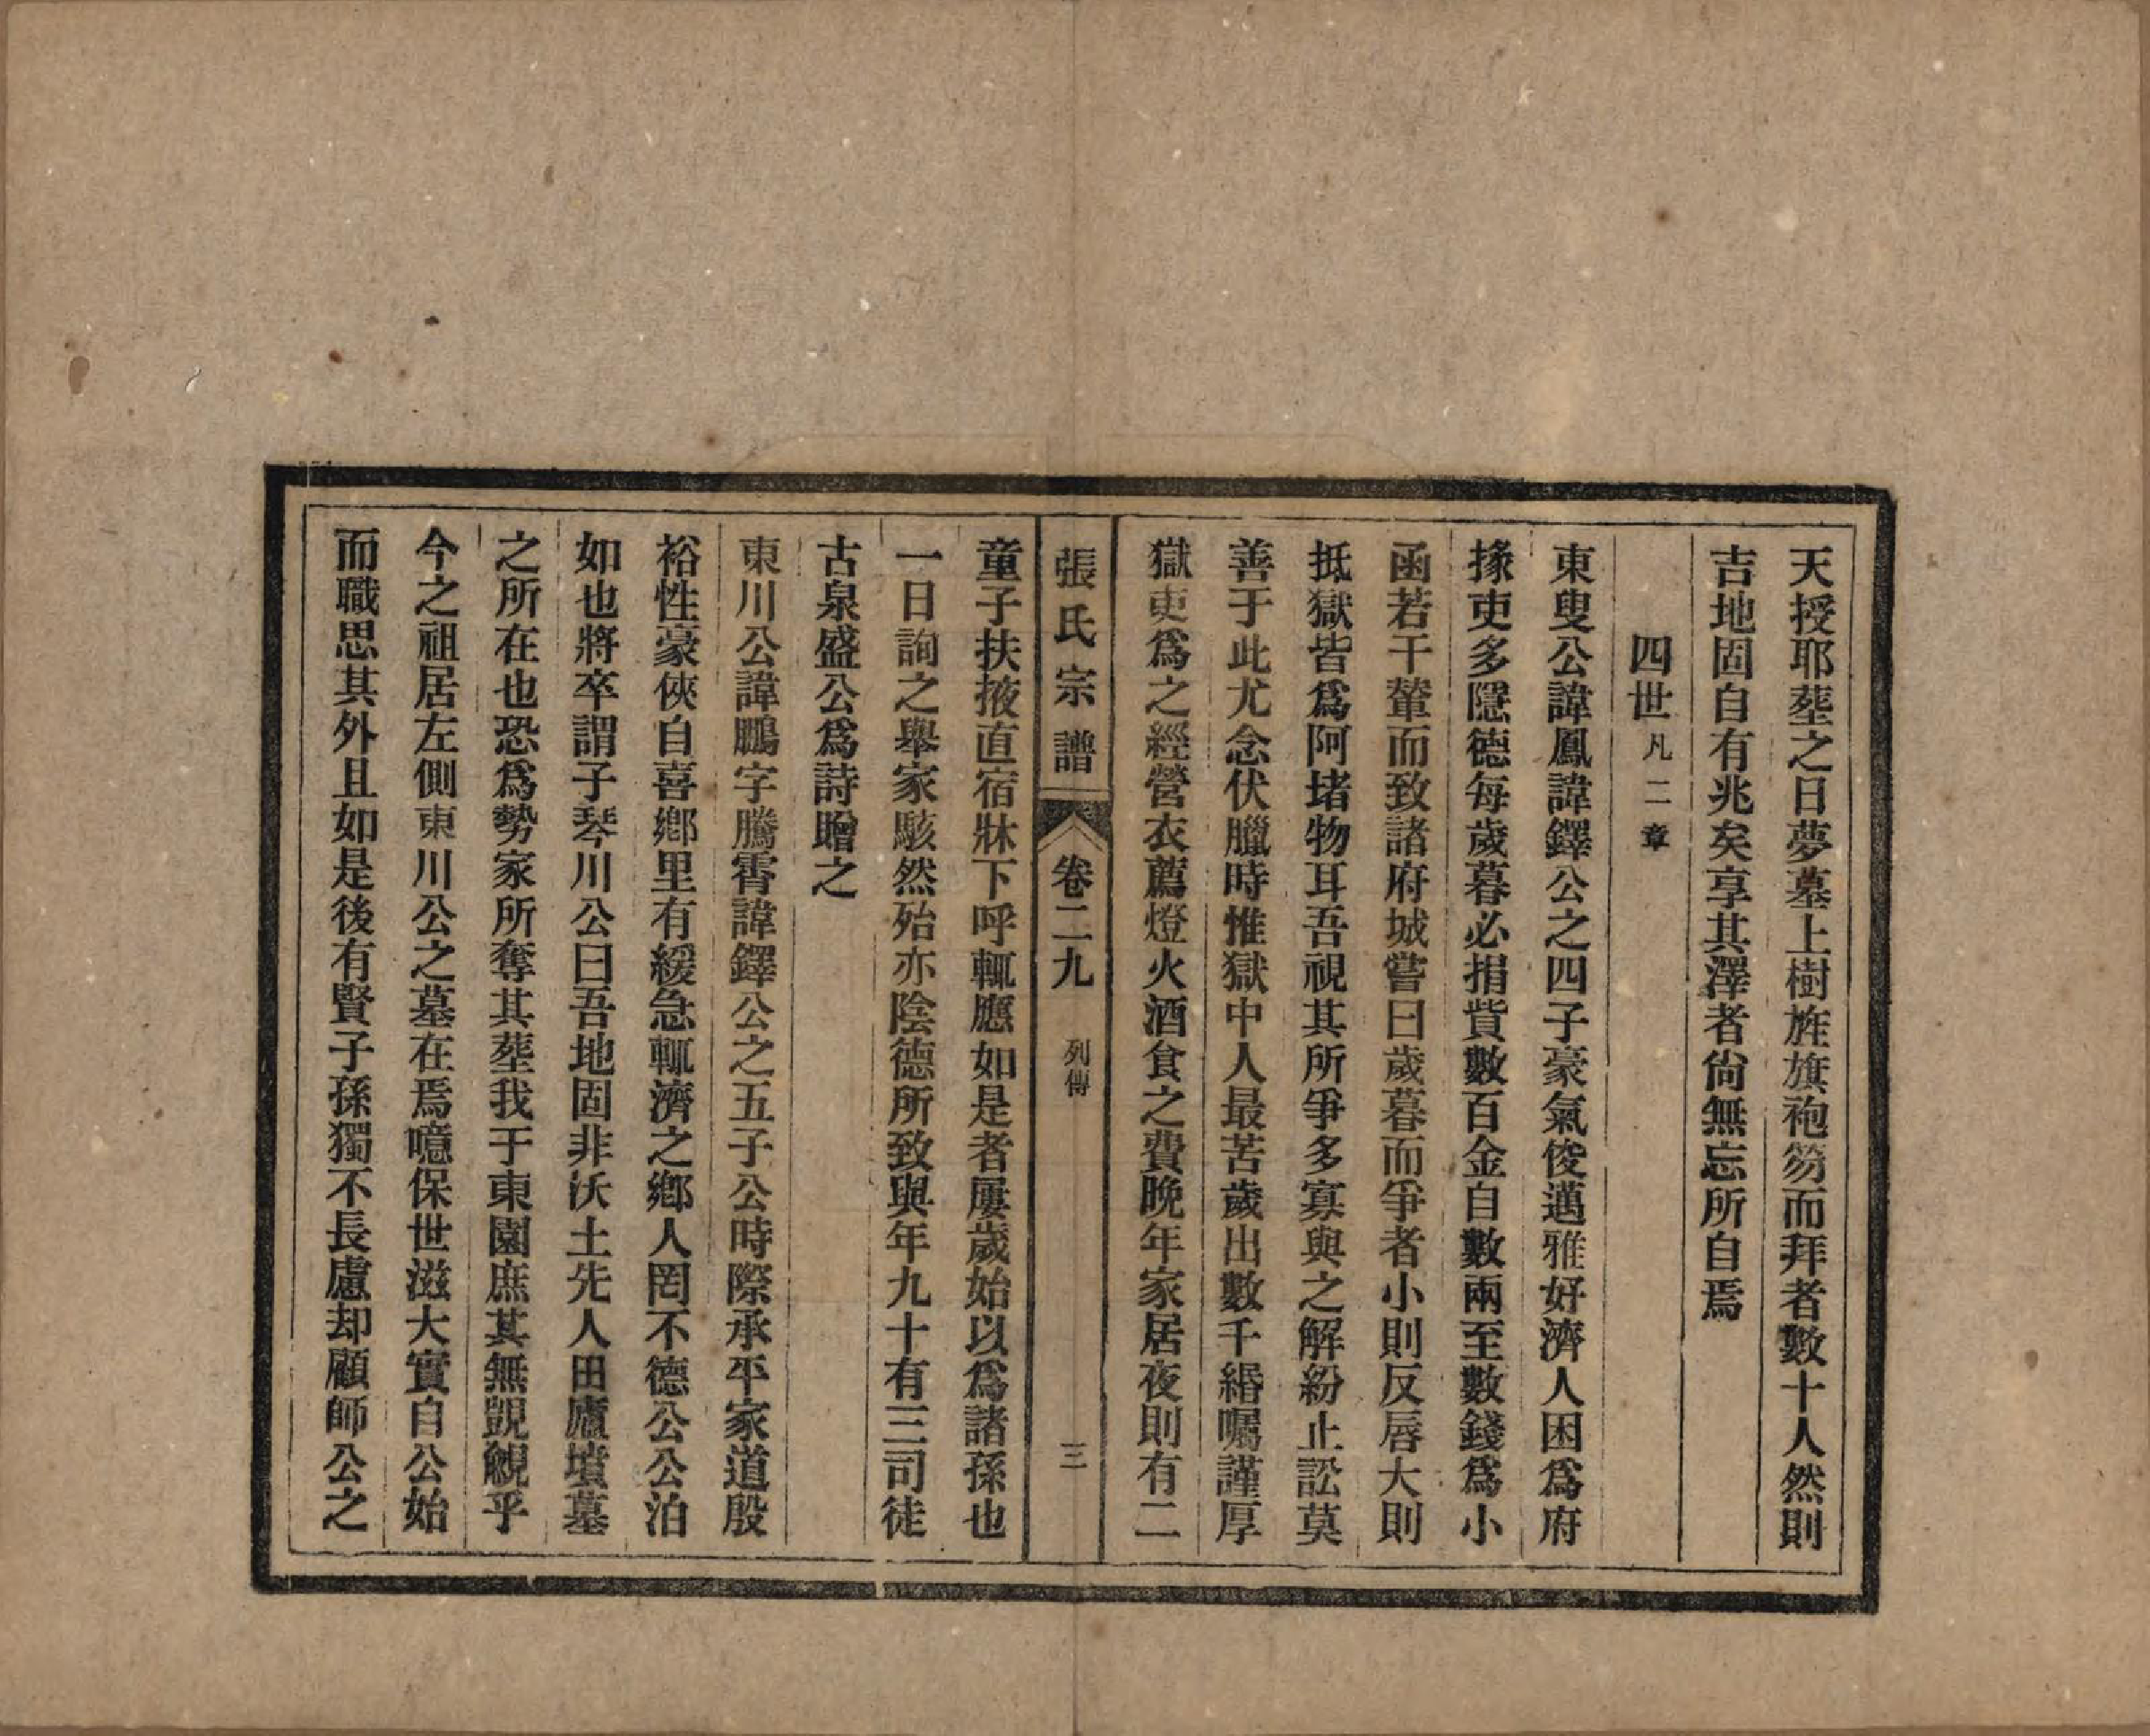 天授耶葬之日夢墓上樹旌旗袍笏而拜者數十人然則
吉地固自有兆矣享其澤者尙無忘所自焉
四世凡二章
東叟公諱鳳諱鐸公之四子豪氣俊邁雅好濟人困爲府
掾吏多隱德每歲暮必捐貲數百金自數兩至數錢爲小
函若干輦而致諸府城嘗曰歲暮而爭者小則反唇大則
抵獄皆爲阿堵物耳吾視其所爭多寡與之解紛止訟莫
善于此尤念伏臘時惟獄中人最苦歲出數千緡囑謹厚
獄吏爲之經營衣薦燈火酒食之費晚年家居夜則有二
張氏宗譜 卷二九 列傳 三
童子扶掖直宿牀下呼輒應如是者屢歲始以爲諸孫也
一日詢之舉家駭然殆亦陰德所致與年九十有三司徒
古泉盛公爲詩贈之
東川公諱鵬字騰霄諱鐸公之五子公時際承平家道殷
裕性豪俠自喜鄉里有緩急輒濟之鄉人罔不德公公泊
如也將卒謂子琴川公曰吾地固非沃土先人田廬墳墓
之所在也恐爲勢家所奪其葬我于東園庶其無覬覦乎
今之祖居左側東川公之墓在焉噫保世滋大實自公始
而職思其外且如是後有賢子孫獨不長慮却顧師公之